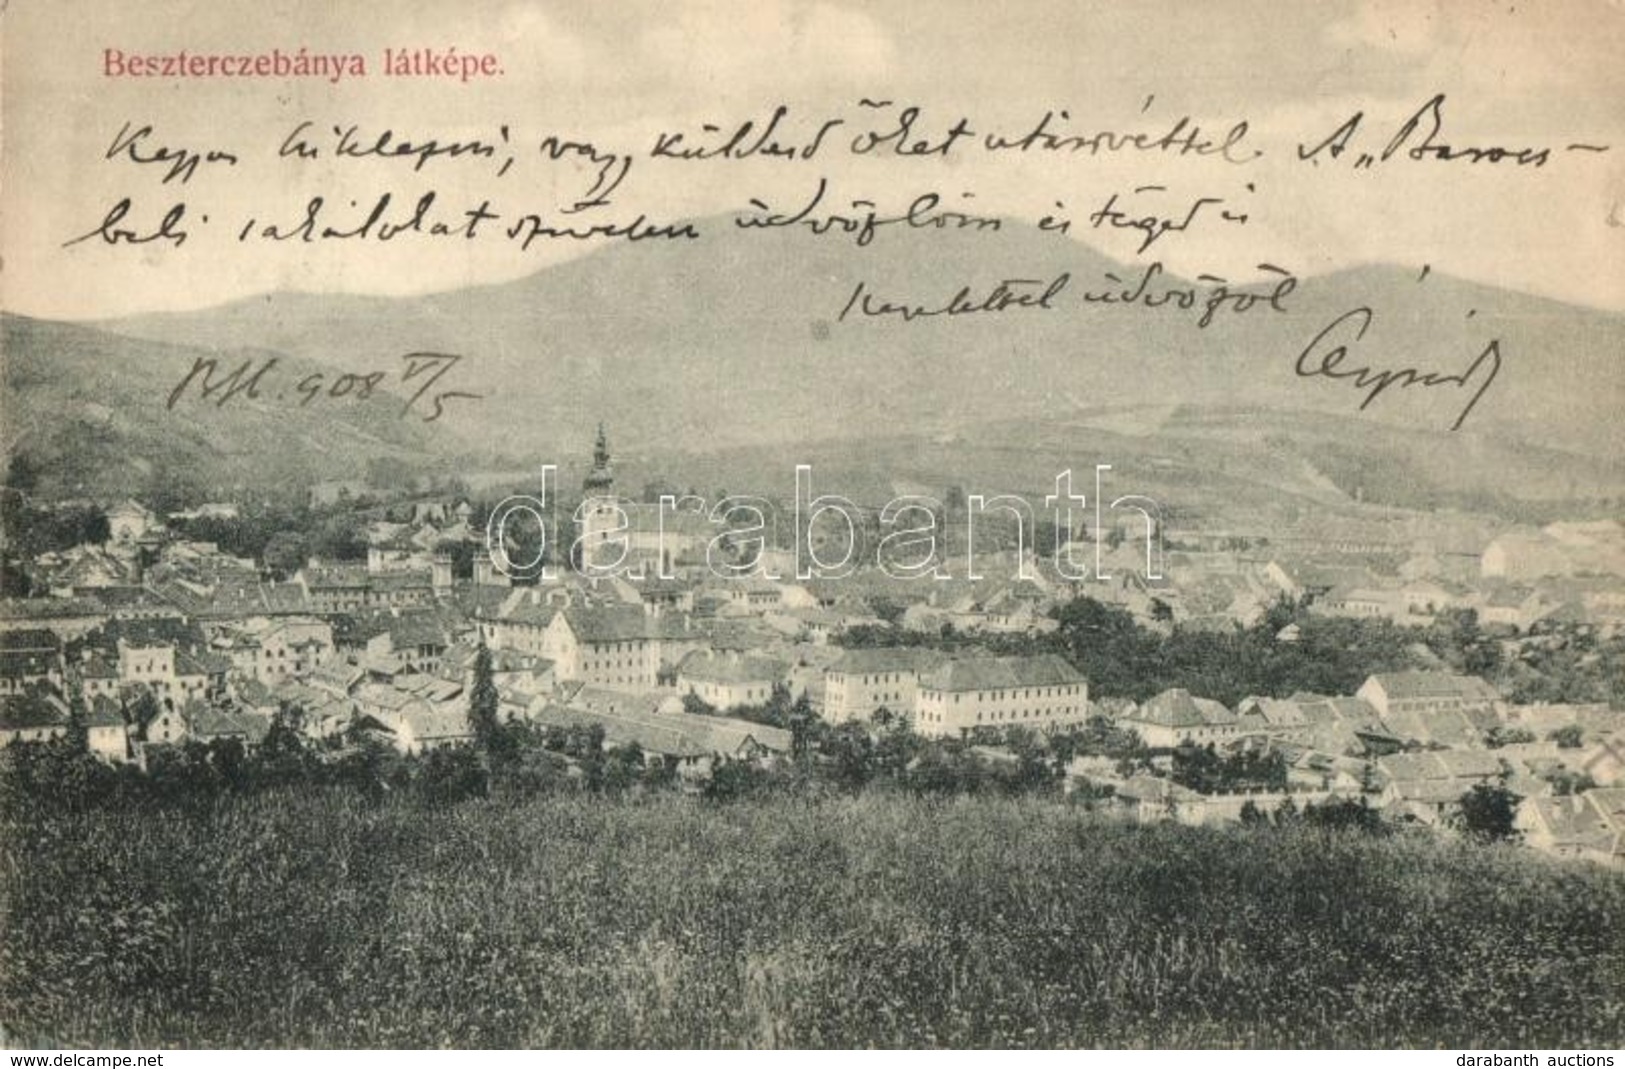 Beszterczebánya látképe.
vagy küldesd őket utánvéttel. A „Baross-
beli sakálokat szívesen üdvözlöm és téged is
szeretettel üdvözöl
908 V/5
darabanth
www.delcampe.net
darabanth auctions